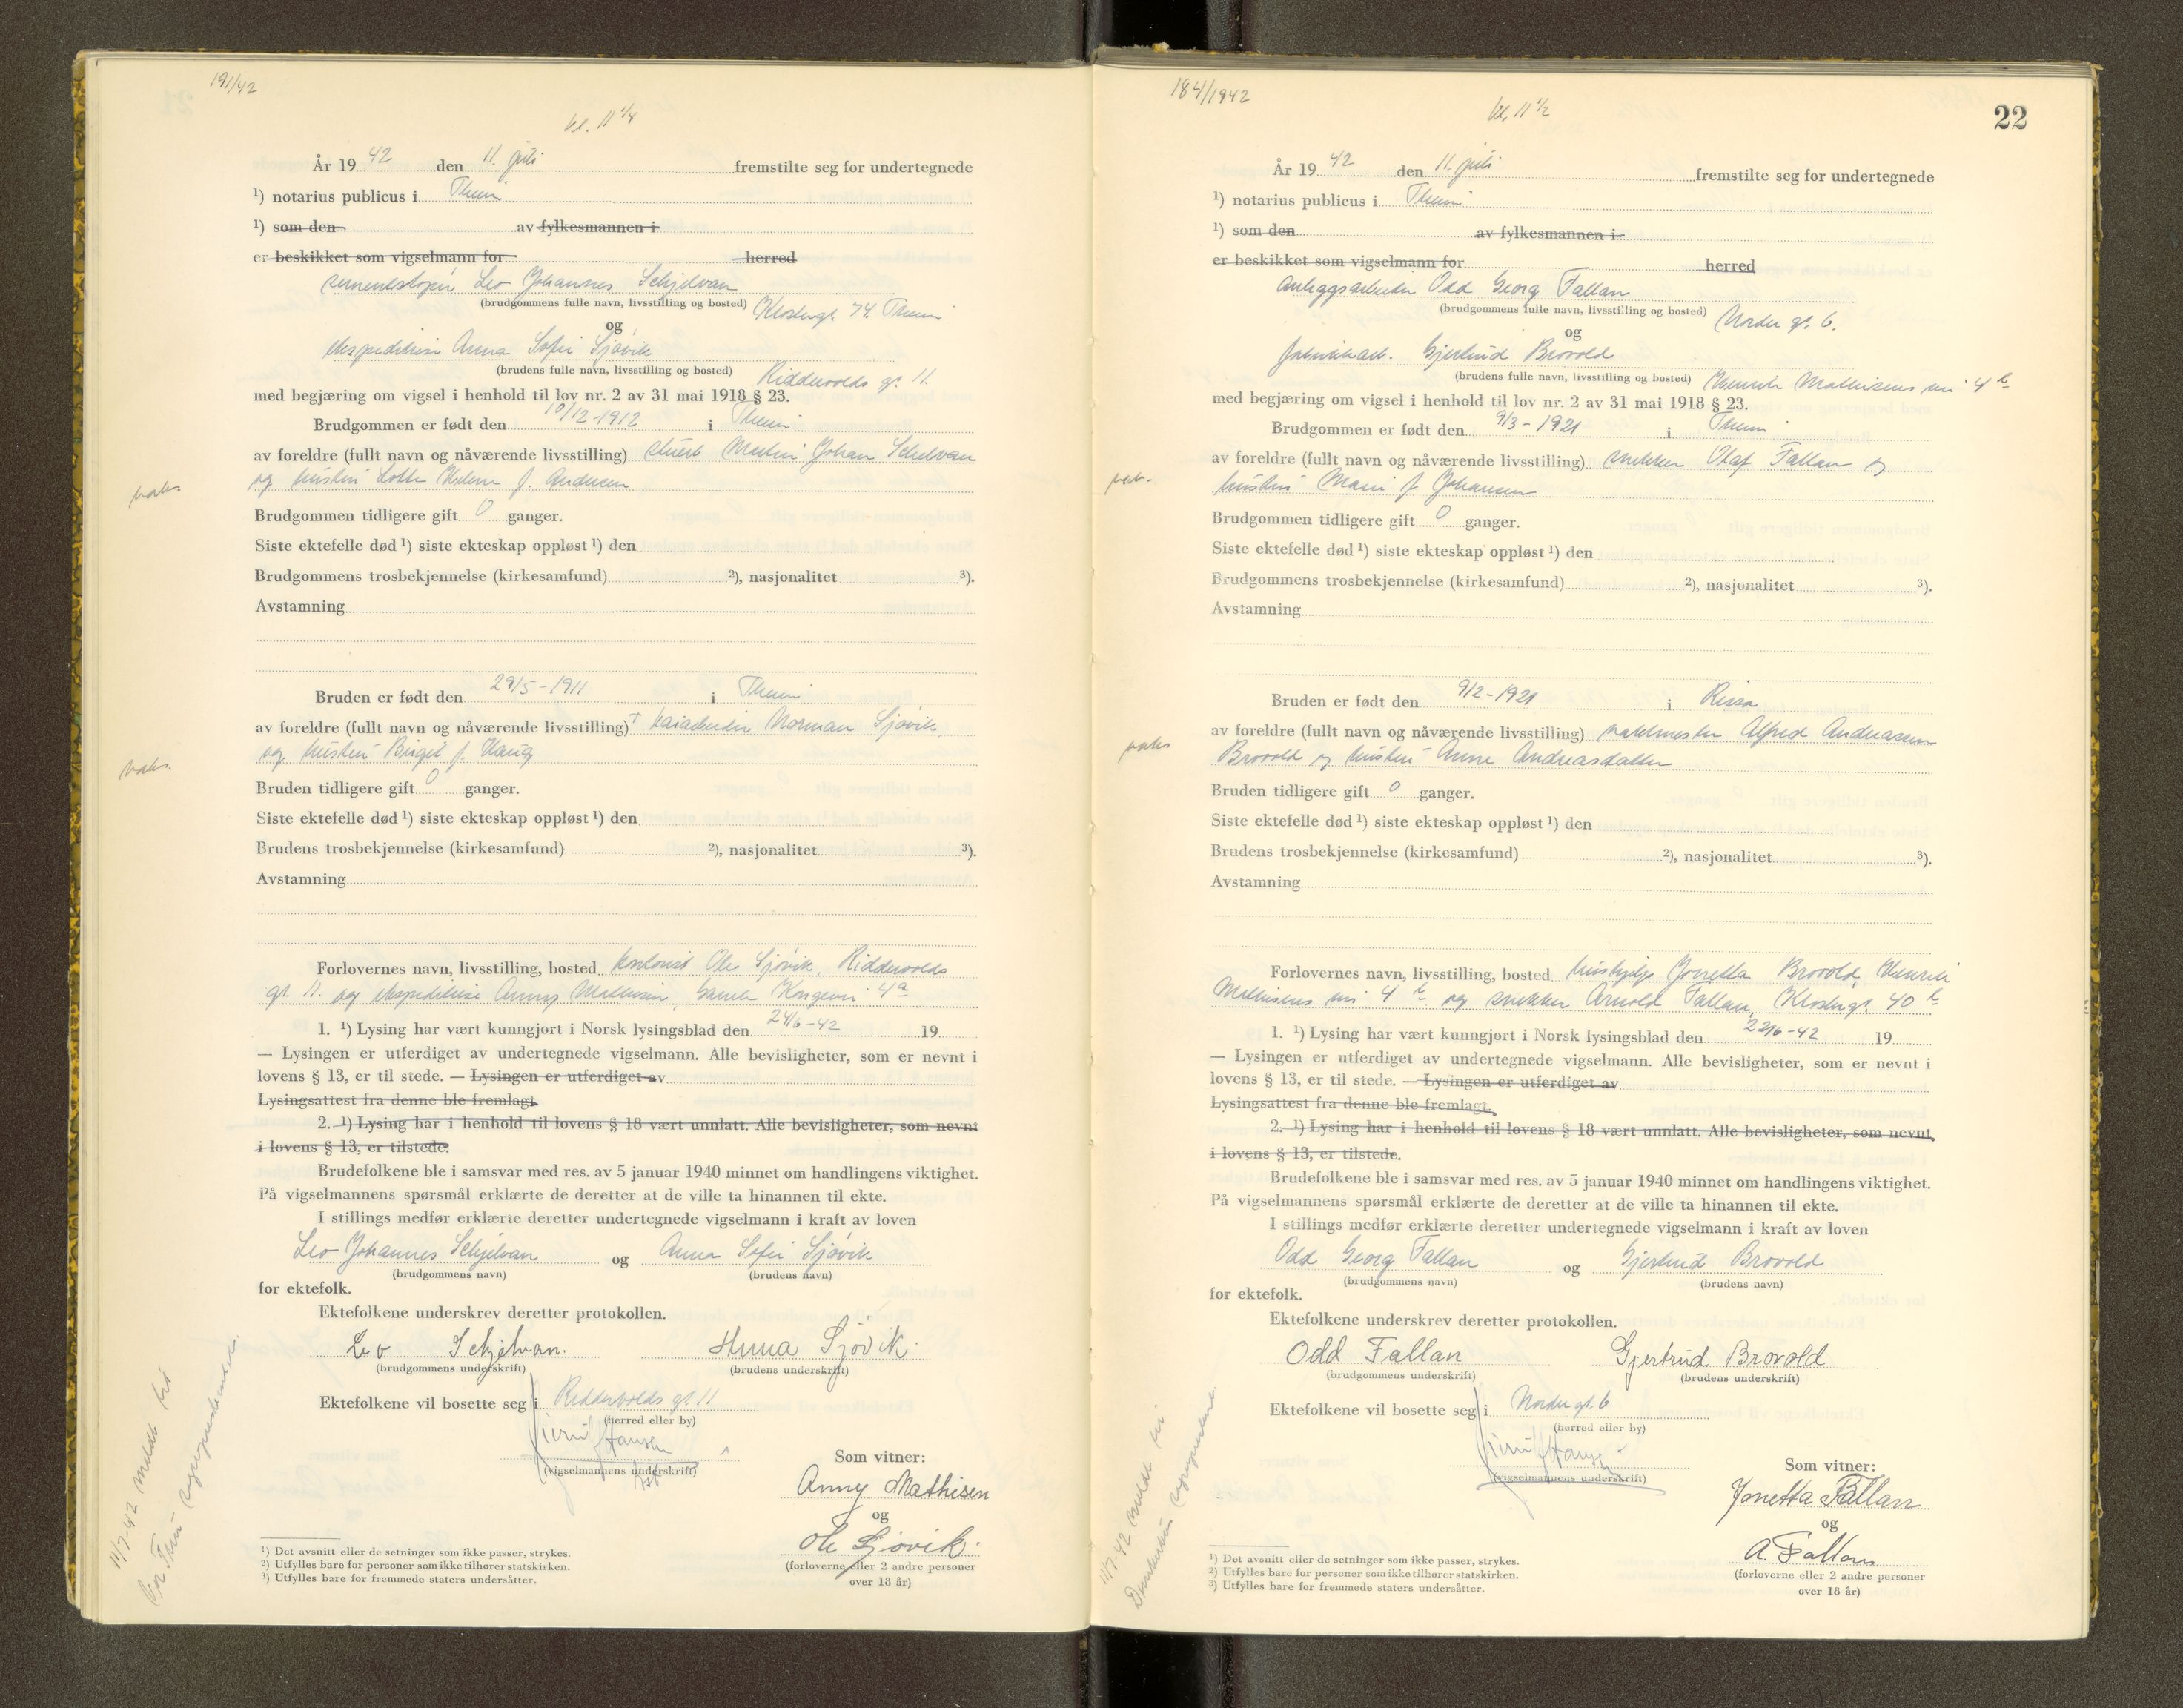 191/42
kl. 11 1/4
År 19 42 den 11. juli fremstilte seg for undertegnede
¹) notarius publicus i Theim
¹) som den av fylkesmannen i
er beskikket som vigselmann for herred
Leo Johannes Schjelvan
(brudgommens fulle navn, livsstilling og bosted) Klostergt. 74 Theim
og
ekspeditrise Anna Sofie Sjøvik
(brudens fulle navn, livsstilling og bosted) Riddervolds gt. 11.
med begjæring om vigsel i henhold til lov nr. 2 av 31 mai 1918 § 23.
Brudgommen er født den 10/12-1912 i Theim
av foreldre (fullt navn og nåværende livsstilling) Martin Johan Schelvan
og hustru Lotte Helene f. Andersen
vaks.
Brudgommen tidligere gift 0 ganger.
Siste ektefelle død ¹) siste ekteskap oppløst ¹) den
Brudgommens trosbekjennelse (kirkesamfund) ²), nasjonalitet ³).
Avstamning
Bruden er født den 29/5-1911 i Theim
av foreldre (fullt navn og nåværende livsstilling) + kaiarbeider Norman Sjøvik
og hustru Birgit f. Haug
vaks.
Bruden tidligere gift 0 ganger.
Siste ektefelle død ¹) siste ekteskap oppløst ¹) den
Brudens trosbekjennelse (kirkesamfund) ²), nasjonalitet ³).
Avstamning
Forlovernes navn, livsstilling, bosted kontorist Ole Sjøvik, Riddervolds
gt. 11. og ekspeditrise Anny Mathisen, Gamle Kongevei 4a
1. ¹) Lysing har vært kunngjort i Norsk lysingsblad den 24/6-42 19
— Lysingen er utferdiget av undertegnede vigselmann. Alle bevisligheter, som er nevnt i
lovens § 13, er til stede. — Lysingen er utferdiget av
Lysingsattest fra denne ble fremlagt.
2. ¹) Lysing har i henhold til lovens § 18 vært unnlatt. Alle bevisligheter, som nevnt
i lovens § 13, er tilstede.
Brudefolkene ble i samsvar med res. av 5 januar 1940 minnet om handlingens viktighet.
På vigselmannens spørsmål erklærte de deretter at de ville ta hinannen til ekte.
I stillings medfør erklærte deretter undertegnede vigselmann i kraft av loven
Leo Johannes Schjelvan og Anna Sofie Sjøvik
(brudgommens navn) (brudens navn)
for ektefolk.
Ektefolkene underskrev deretter protokollen.
Leo Schjelvan. Anna Sjøvik.
(brudgommens underskrift) (brudens underskrift)
Ektefolkene vil bosette seg i Riddervolds gt. 11
(herred eller by)
Hansen
(vigselmannens underskrift)
Som vitner:
Anny Mathisen
og
Ole Sjøvik.
(forloverne eller 2 andre personer
over 18 år)
11/7-42 meldt til
¹) Det avsnitt eller de setninger som ikke passer, strykes.
²) Utfylles bare for personer som ikke tilhører statskirken.
³) Utfylles bare for fremmede staters undersåtter.
184/1942
kl. 11 1/2
22
År 19 42 den 11. juli fremstilte seg for undertegnede
¹) notarius publicus i Theim
¹) som den av fylkesmannen i
er beskikket som vigselmann for herred
Anleggsarbeider Odd Georg Fallan
(brudgommens fulle navn, livsstilling og bosted) Nordre gt. 6.
og
fabrikkarb. Gjertrud Brovold
(brudens fulle navn, livsstilling og bosted) Henrik Mathisens vei 4 b
med begjæring om vigsel i henhold til lov nr. 2 av 31 mai 1918 § 23.
Brudgommen er født den 9/3-1921 i Theim
av foreldre (fullt navn og nåværende livsstilling) snekker Olaf Fallan og
hustru Marie f. Johansen
vaks.
Brudgommen tidligere gift 0 ganger.
Siste ektefelle død ¹) siste ekteskap oppløst ¹) den
Brudgommens trosbekjennelse (kirkesamfund) ²), nasjonalitet ³).
Avstamning
Bruden er født den 9/2-1921 i Rissa
av foreldre (fullt navn og nåværende livsstilling) vaktmester Alfred Andreassen
Brovold og hustru Anne Andreasdatter
vaks
Bruden tidligere gift 0 ganger.
Siste ektefelle død ¹) siste ekteskap oppløst ¹) den
Brudens trosbekjennelse (kirkesamfund) ²), nasjonalitet ³).
Avstamning
Forlovernes navn, livsstilling, bosted Jonetta Brovold, Henrik
Mathisens vei 4 b og snekker Arnold Fallan, Klostergt. 40 b
1. ¹) Lysing har vært kunngjort i Norsk lysingsblad den 22/6-42 19
— Lysingen er utferdiget av undertegnede vigselmann. Alle bevisligheter, som er nevnt i
lovens § 13, er til stede. — Lysingen er utferdiget av
Lysingsattest fra denne ble fremlagt.
2. ¹) Lysing har i henhold til lovens § 18 vært unnlatt. Alle bevisligheter, som nevnt
i lovens § 13, er tilstede.
Brudefolkene ble i samsvar med res. av 5 januar 1940 minnet om handlingens viktighet.
På vigselmannens spørsmål erklærte de deretter at de ville ta hinannen til ekte.
I stillings medfør erklærte deretter undertegnede vigselmann i kraft av loven
Odd Georg Fallan og Gjertrud Brovold
(brudgommens navn) (brudens navn)
for ektefolk.
Ektefolkene underskrev deretter protokollen.
Odd Fallan Gjertrud Brovold
(brudgommens underskrift) (brudens underskrift)
Ektefolkene vil bosette seg i Nordre gt. 6
(herred eller by)
Hansen
(vigselmannens underskrift)
Som vitner:
Jonetta Fallan
og
A. Fallan
(forloverne eller 2 andre personer
over 18 år)
11/7-42 meldt til
¹) Det avsnitt eller de setninger som ikke passer, strykes.
²) Utfylles bare for personer som ikke tilhører statskirken.
³) Utfylles bare for fremmede staters undersåtter.